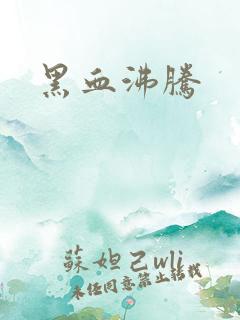 黑血沸騰
蘇妲己wli
未经同意禁止转载